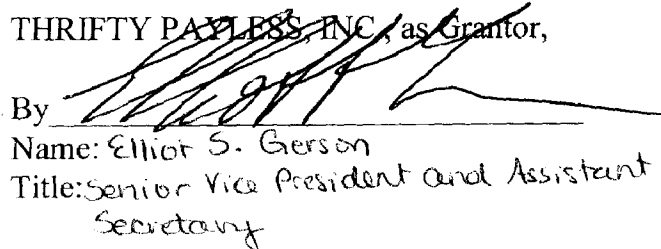 THRIFTY PAYLESS, INC., as Grantor,
By
Name: Elliot S. Gerson
Title: Senior Vice President and Assistant
Secretary